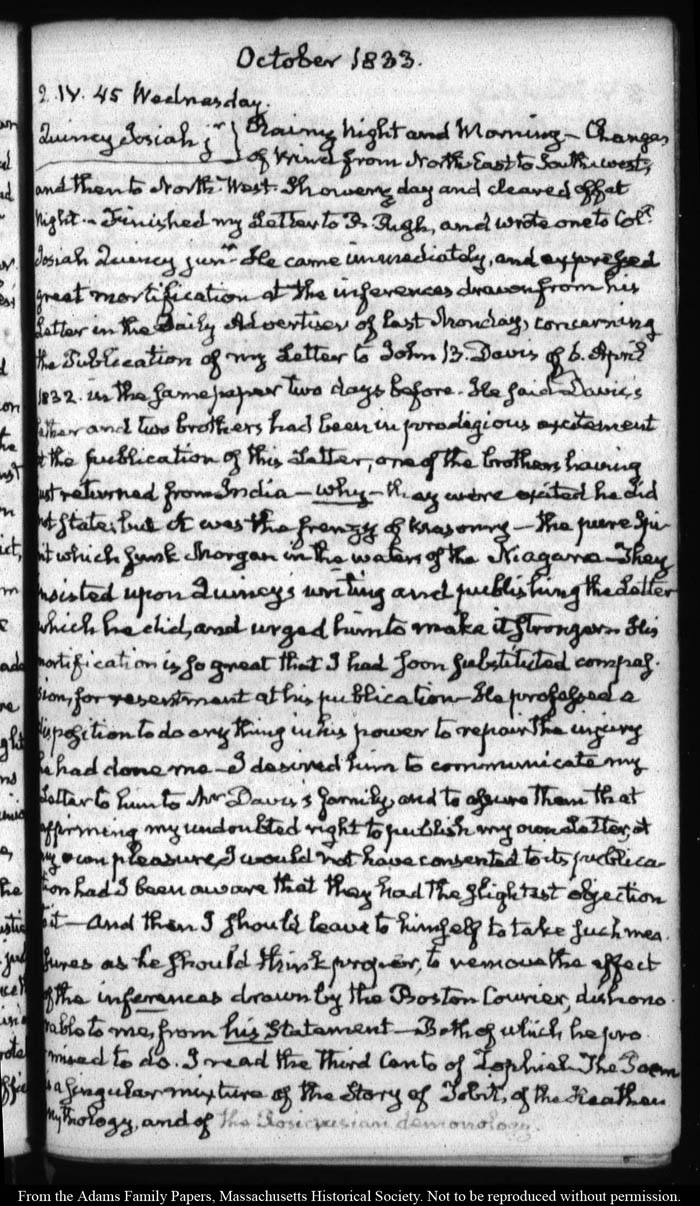 October 1833.
2. IV. 45 Wednesday.
Quincy Josiah jr. } Rainy Night and Morning — Changes
of Wind from North-East to South-west,
and then to North-West. Showery day and cleared off at
Night — Finished my Letter to B. Pugh, and wrote one to Col.
Josiah Quincy junr. He came immediately, and expressed
great mortification at the inferences drawn from his
Letter in the Daily Advertiser of last Monday, concerning
the Publication of my Letter to John B. Davis of 6. April
1832. in the same paper two days before. He said Davis's
father and two brothers had been in prodigious excitement
at the publication of this Letter, one of the brothers having
just returned from India — why — they were excited he did
not state, but it was the frenzy of Masonry — the pure Spi-
rit which sunk Morgan in the waters of the Niagara — They
insisted upon Quincy's writing and publishing the Letter
which he did, and urged him to make it stronger. His
mortification is so great that I had soon substituted compas-
sion, for resentment at his publication — He professed a
disposition to do any thing in his power to repair the injury
he had done me — I desired him to communicate my
Letter to him to Mr Davis's family, and to assure them that
affirming my undoubted right to publish my own Letter, at
my own pleasure, I would not have consented to its publica-
tion had I been aware that they had the slightest objection
to it — And then I should leave to himself to take such mea-
sures as he should think proper, to remove the effect
of the inferences drawn by the Boston Courier, dishono-
rable to me, from his Statement — Both of which he pro-
mised to do. I read the third Canto of Zophiel. The Poem
is a singular mixture of the Story of Tobit, of the Heathen
Mythology, and of the Rosicrusian demonology.
From the Adams Family Papers, Massachusetts Historical Society. Not to be reproduced without permission.